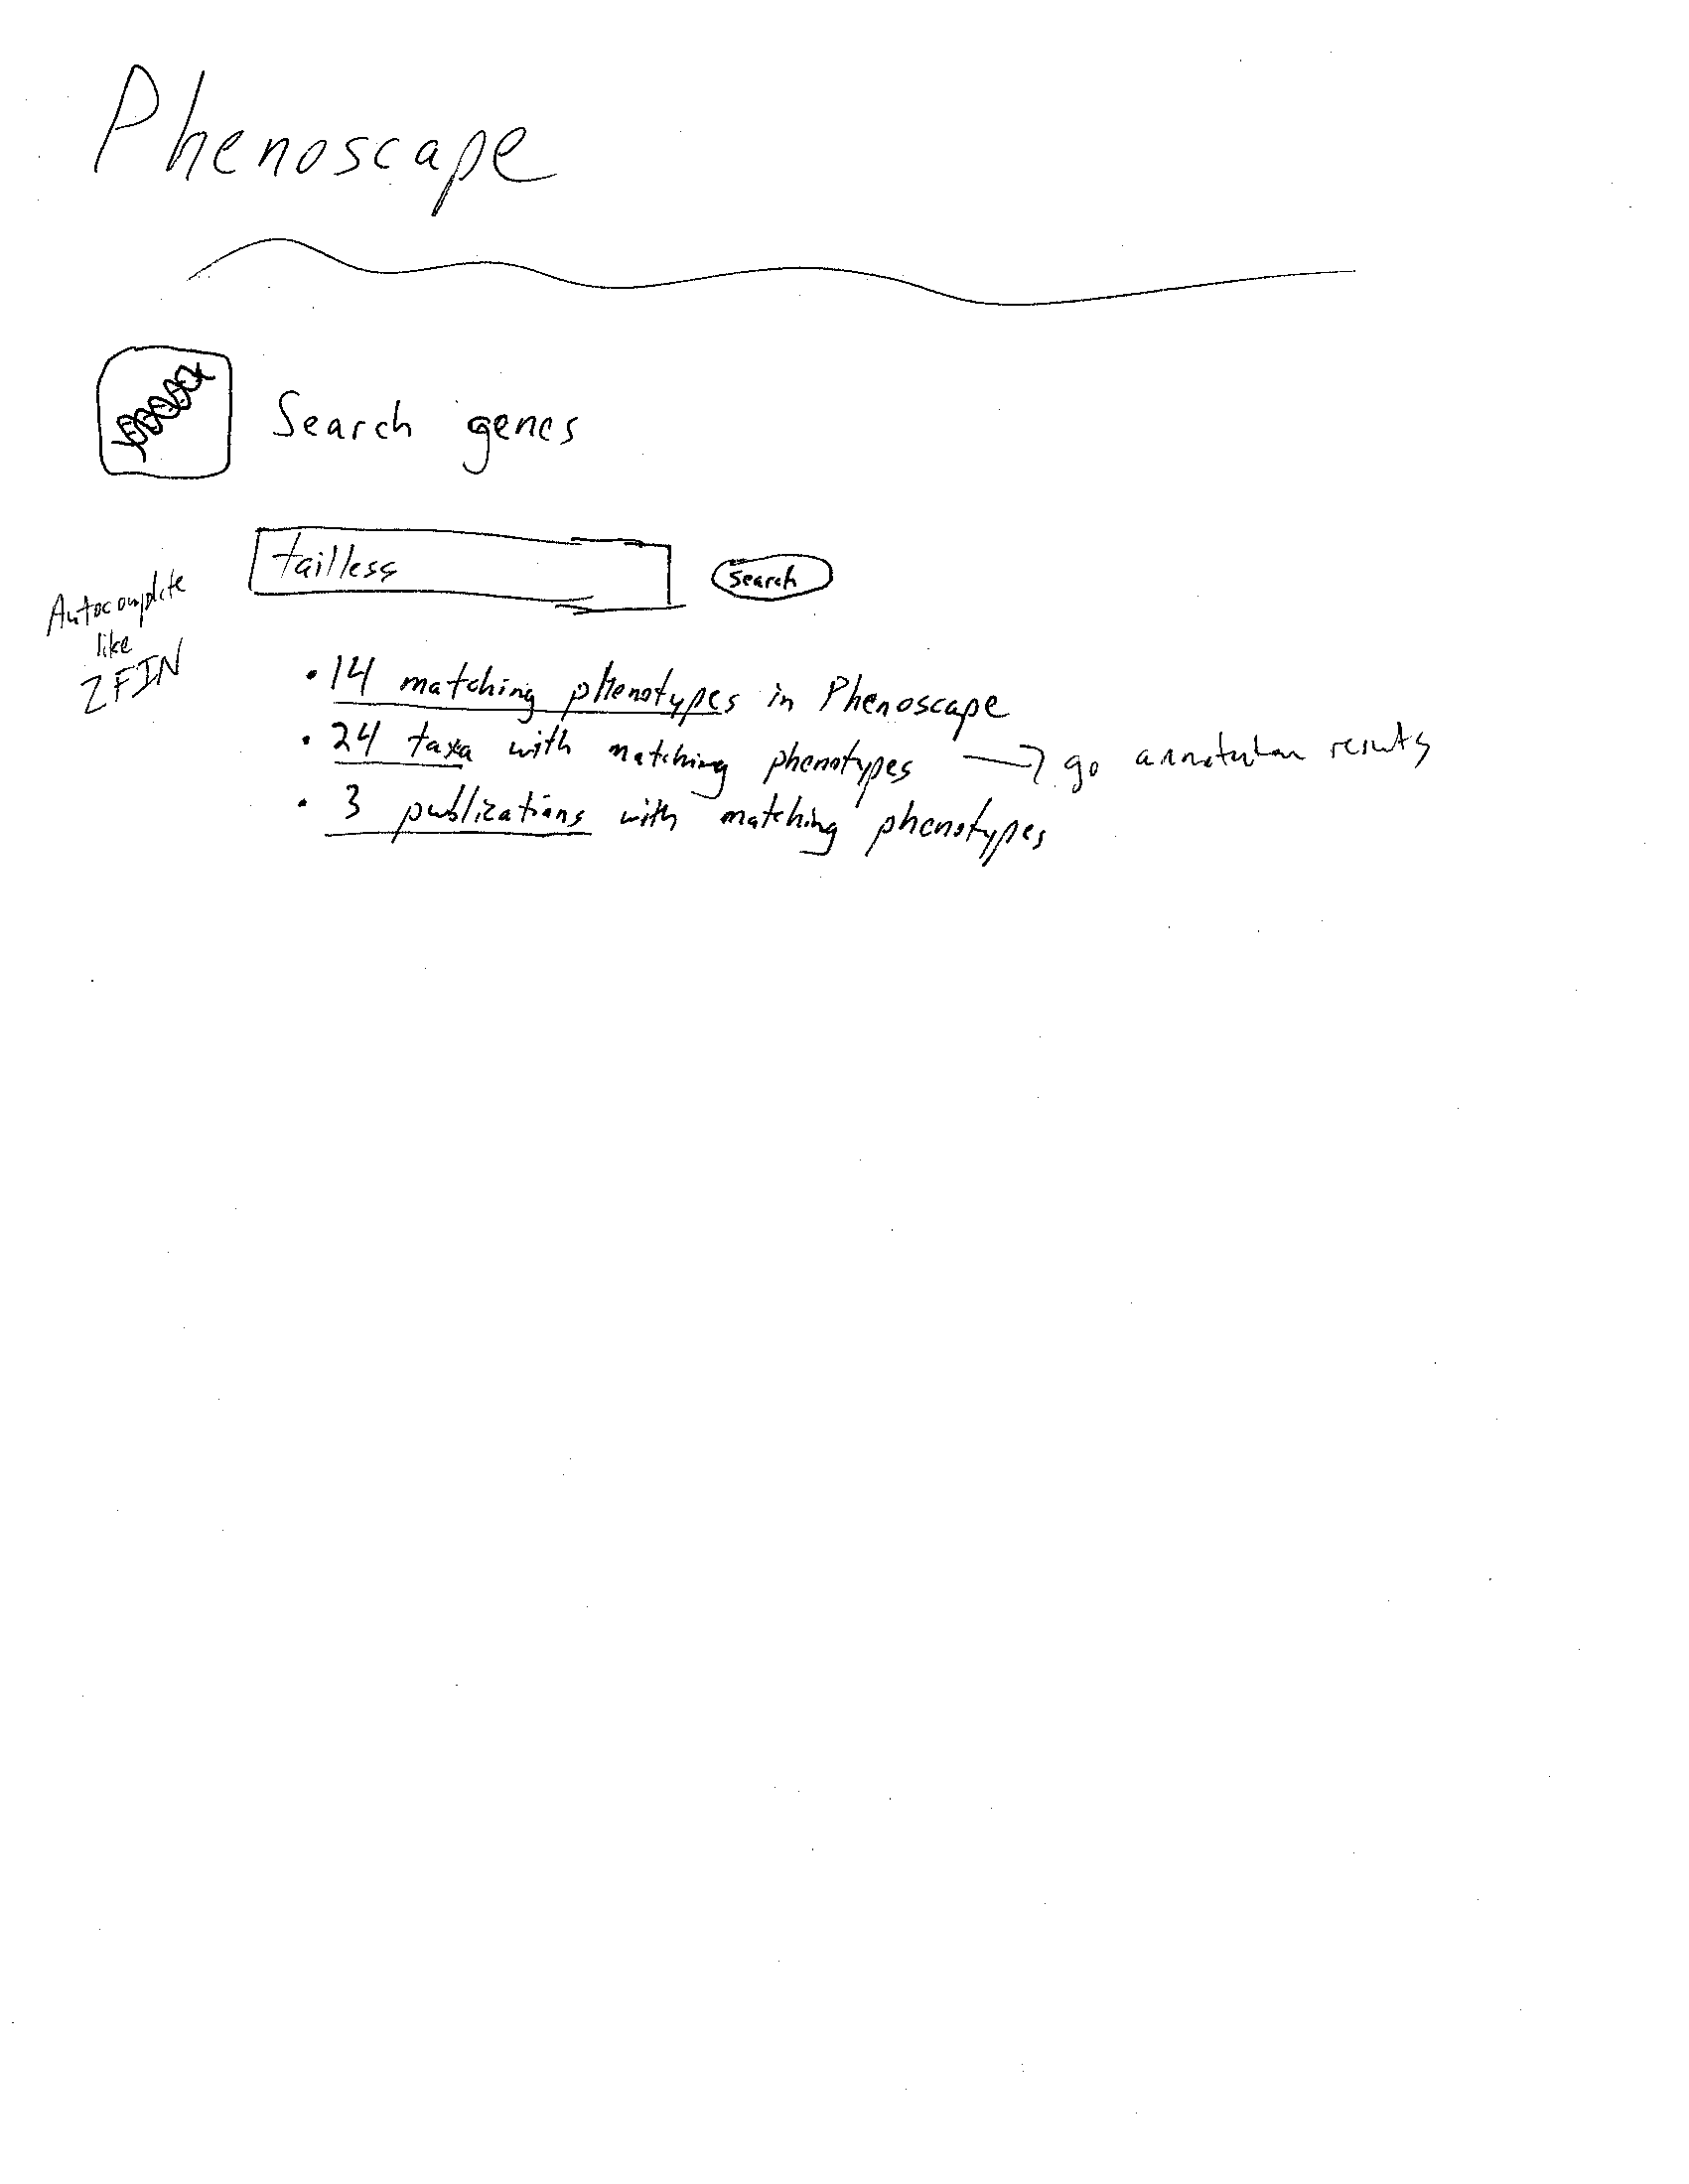 Phenoscape
Search genes
tailless
Search
Autocomplete
like
ZFIN
• 14 matching phenotypes in Phenoscape
• 24 taxa with matching phenotypes → go annotation results
• 3 publications with matching phenotypes